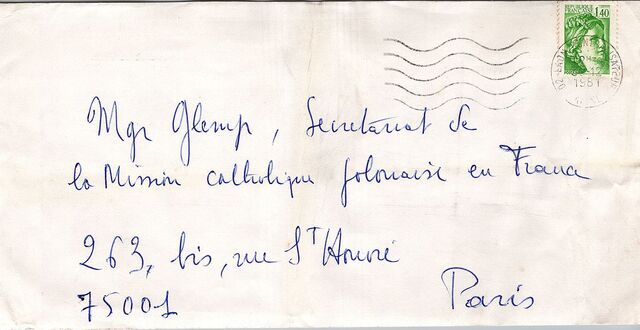 REPUBLIQUE FRANCAISE 1,40
1981
Mgr Glemp, Secretariat de
la Mission catholique polonaise en France
263, bis, rue St Honoré
75001 Paris